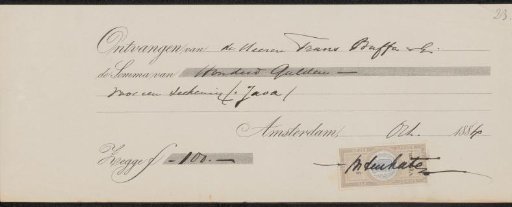 23.
Ontvangen van de Heeren Frans Buffa & Co.
de Somma van Honderd Gulden —
voor een teekening (: Java /
Amsterdam, Oct. 1884
Zegge ƒ - 100. -
M ten Kate